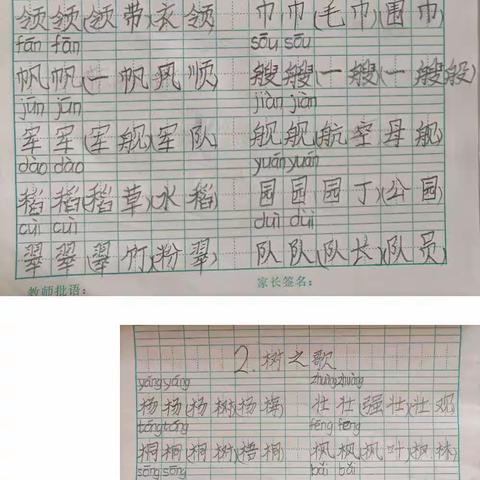 领 领(领带)(衣领) 巾 巾(毛巾)(围巾)
fān fān sōu sōu
帆 帆(一帆风顺) 艘 艘(一艘)(一艘船)
jūn jūn jiàn jiàn
军 军(军舰)(军队) 舰 舰(航空母舰)
dào dào yuán yuán
稻 稻(稻草)(水稻) 园 园(园丁)(公园)
cuì cuì duì duì
翠 翠(翠竹)(粉翠) 队 队(队长)(队员)
教师批语: 家长签名:
2.树之歌
yáng yáng zhuàng zhuàng
杨 杨(杨树)(杨梅) 壮 壮(强壮)(壮观)
tóng tóng fēng fēng
桐 桐(桐树)(梧桐) 枫 枫(枫叶)(枫林)
sōng sōng bǎi bǎi